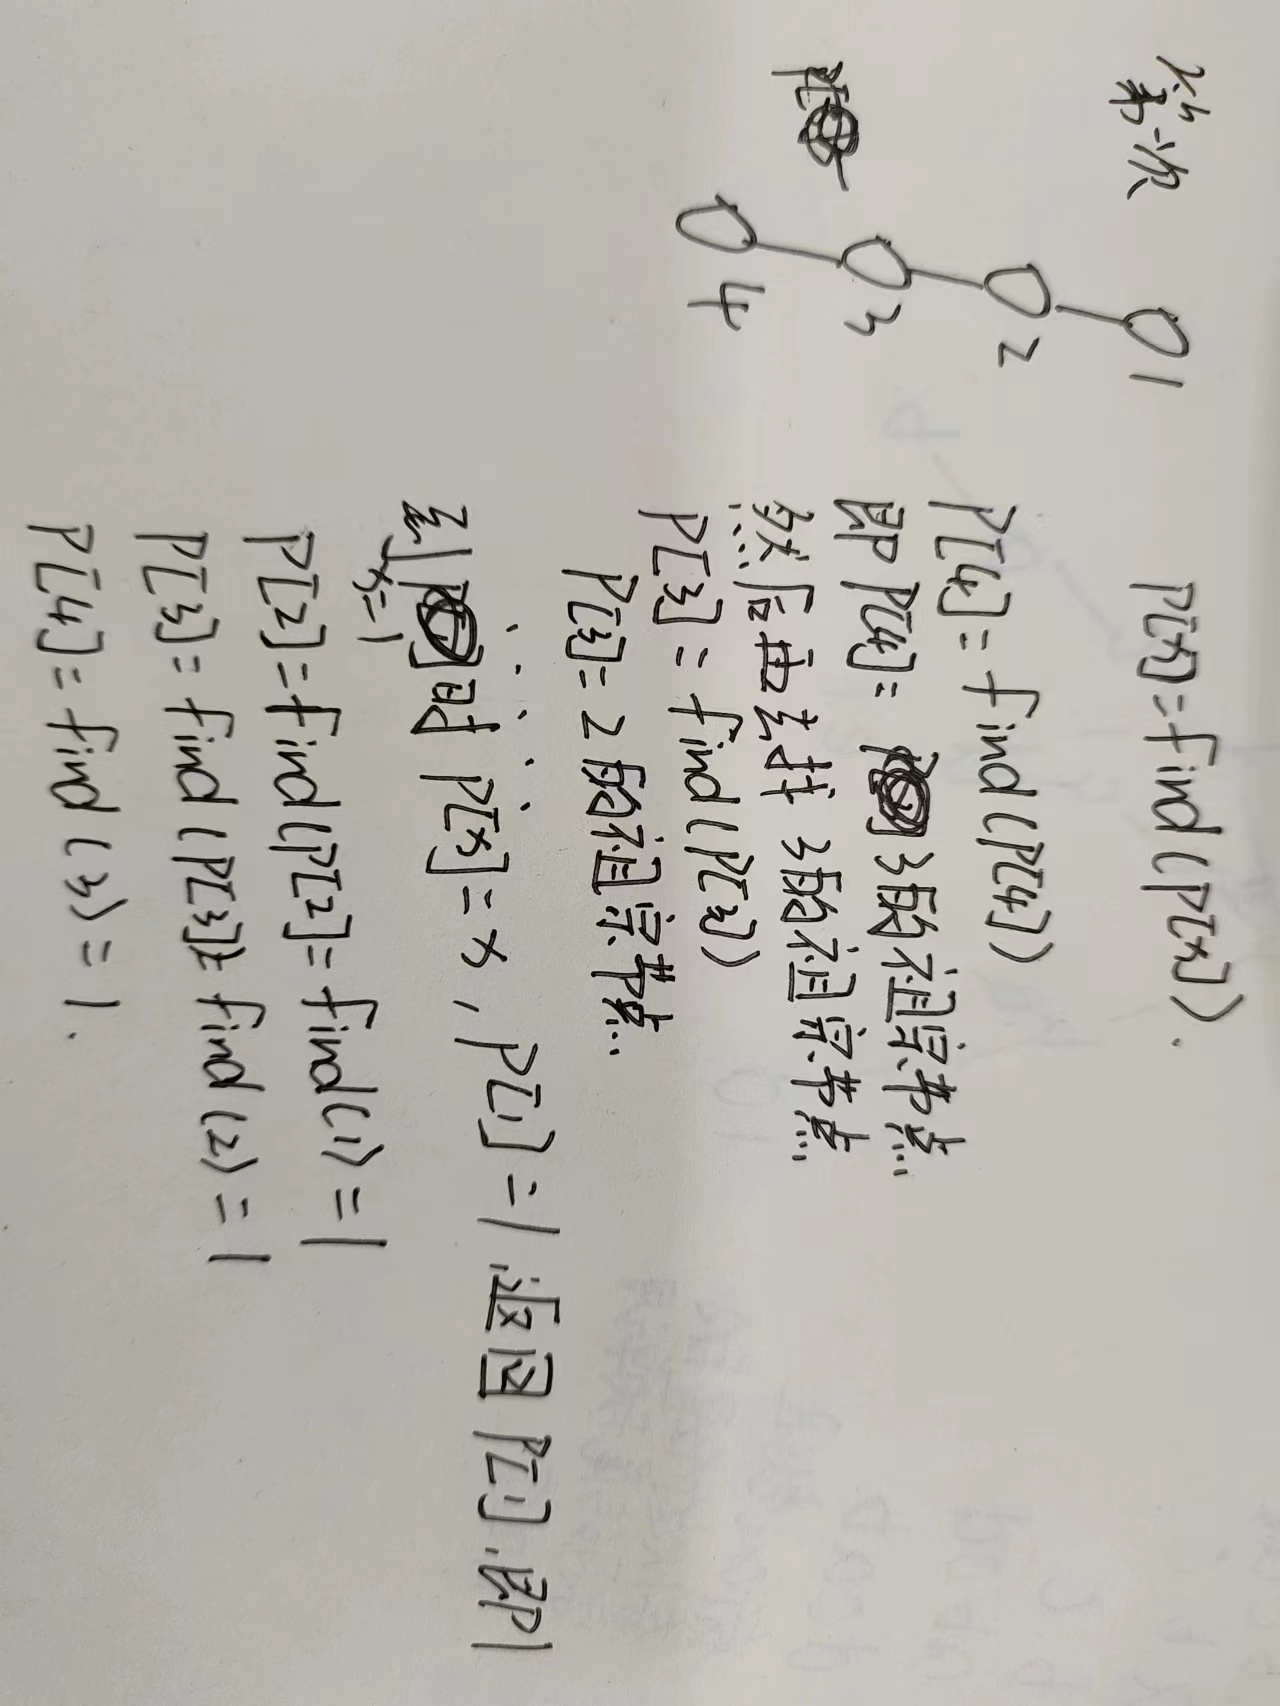 第一次
1
2
3
4
P[x]=find(P[x]).
P[4]=find(P[4])
即P[4]= 3的祖宗节点.
然后再去找 3的祖宗节点
P[3]=find(P[3])
P[3]=2的祖宗节点.
......
到 时 P[x]=x, P[1]=1,返回P[1],即1
x=1
P[2]=find(P[2]=find(1)=1
P[3]=find(P[3])=find(2)=1
P[4]=find(3)=1.